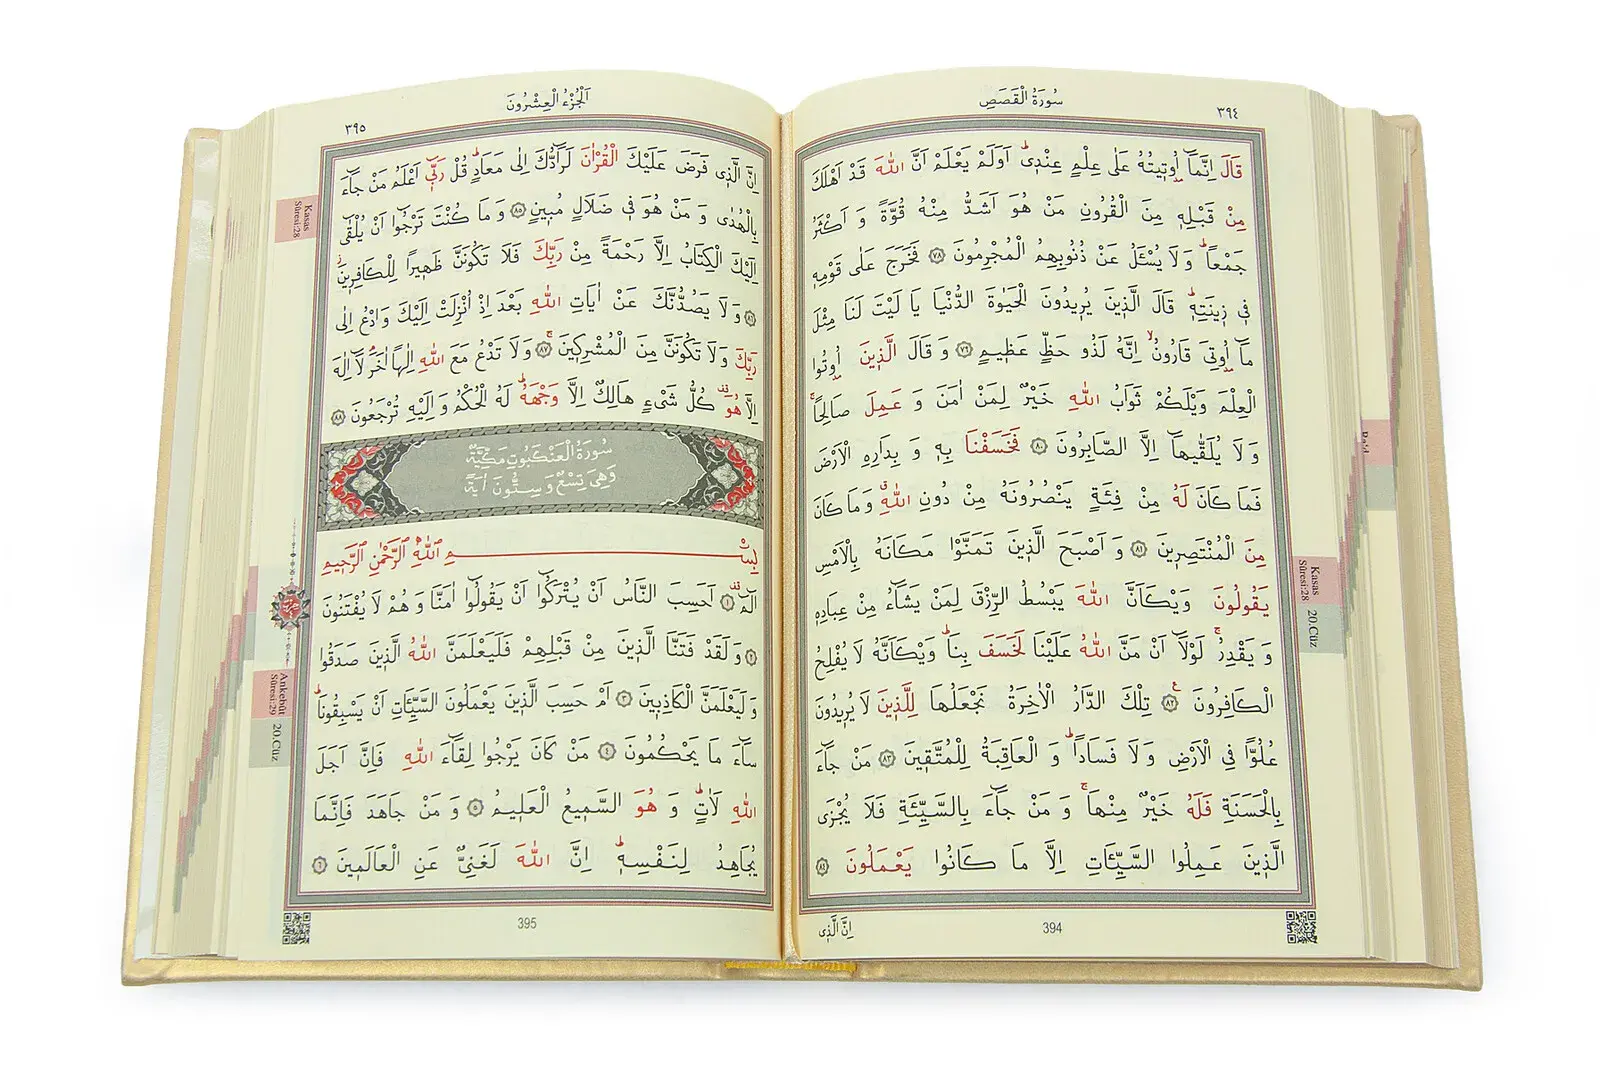 سُورَةُ الْقَصَصِ
٣٩٤
قَالَ اِنَّمَٓا اُو۫ت۪يتُهُ عَلٰى عِلْمٍ عِنْد۪يۜ اَوَلَمْ يَعْلَمْ اَنَّ اللّٰهَ قَدْ اَهْلَكَ
مِنْ قَبْلِه۪ مِنَ الْقُرُونِ مَنْ هُوَ اَشَدُّ مِنْهُ قُوَّةً وَ اَكْثَرُ
جَمْعاًۜ وَ لَا يُسْـَٔلُ عَنْ ذُنُوبِهِمُ الْمُجْرِمُونَ ﴿٧٨﴾ فَخَرَجَ عَلٰى قَوْمِه۪
ف۪ي ز۪ينَتِه۪ۜ قَالَ الَّذ۪ينَ يُر۪يدُونَ الْحَيٰوةَ الدُّنْيَا يَا لَيْتَ لَنَا مِثْلَ
مَٓا اُو۫تِيَ قَارُونُۙ اِنَّهُ لَذُو حَظٍّ عَظ۪يمٍ ﴿٧٩﴾ وَ قَالَ الَّذ۪ينَ اُو۫تُوا
الْعِلْمَ وَيْلَكُمْ ثَوَابُ اللّٰهِ خَيْرٌ لِمَنْ اٰمَنَ وَ عَمِلَ صَالِحاًۚ
وَ لَا يُلَقّٰيهَٓا اِلَّا الصَّابِرُونَ ﴿٨٠﴾ فَخَسَفْنَا بِه۪ وَ بِدَارِهِ الْاَرْضَ
فَمَا كَانَ لَهُ مِنْ فِئَةٍ يَنْصُرُونَهُ مِنْ دُونِ اللّٰهِۗ وَ مَا كَانَ
مِنَ الْمُنْتَصِر۪ينَ ﴿٨١﴾ وَ اَصْبَحَ الَّذ۪ينَ تَمَنَّوْا مَكَانَهُ بِالْاَمْسِ
يَقُولُونَ وَيْكَاَنَّ اللّٰهَ يَبْسُطُ الرِّزْقَ لِمَنْ يَشَٓاءُ مِنْ عِبَادِه۪
وَ يَقْدِرُۚ لَوْلَٓا اَنْ مَنَّ اللّٰهُ عَلَيْنَا لَخَسَفَ بِنَاۜ وَيْكَاَنَّهُ لَا يُفْلِحُ
الْكَافِرُونَ ﴿٨٢﴾ تِلْكَ الدَّارُ الْاٰخِرَةُ نَجْعَلُهَا لِلَّذ۪ينَ لَا يُر۪يدُونَ
عُلُوًّا فِي الْاَرْضِ وَ لَا فَسَاداًۜ وَ الْعَاقِبَةُ لِلْمُتَّق۪ينَ ﴿٨٣﴾ مَنْ جَٓاءَ
بِالْحَسَنَةِ فَلَهُ خَيْرٌ مِنْهَاۚ وَ مَنْ جَٓاءَ بِالسَّيِّئَةِ فَلَا يُجْزَى
الَّذ۪ينَ عَمِلُوا السَّيِّـَٔاتِ اِلَّا مَا كَانُوا يَعْمَلُونَ ﴿٨٤﴾
Kasas
Sûresi:28
20.Cüz
اِنَّ الَّذ۪ي
394
اَلْجُزْءُ الْعِشْرُونَ
٣٩٥
اِنَّ الَّذ۪ي فَرَضَ عَلَيْكَ الْقُرْاٰنَ لَرَٓادُّكَ اِلٰى مَعَادٍۜ قُلْ رَبّ۪ٓي اَعْلَمُ مَنْ جَٓاءَ
بِالْهُدٰى وَ مَنْ هُوَ ف۪ي ضَلَالٍ مُب۪ينٍ ﴿٨٥﴾ وَ مَا كُنْتَ تَرْجُٓوا اَنْ يُلْقٰٓى
اِلَيْكَ الْكِتَابُ اِلَّا رَحْمَةً مِنْ رَبِّكَ فَلَا تَكُونَنَّ ظَه۪يراً لِلْكَافِر۪ينَۘ
﴿٨٦﴾ وَ لَا يَصُدُّنَّكَ عَنْ اٰيَاتِ اللّٰهِ بَعْدَ اِذْ اُنْزِلَتْ اِلَيْكَ وَ ادْعُ اِلٰى
رَبِّكَ وَ لَا تَكُونَنَّ مِنَ الْمُشْرِك۪ينَۚ ﴿٨٧﴾ وَ لَا تَدْعُ مَعَ اللّٰهِ اِلٰهاً اٰخَرَۢ لَٓا اِلٰهَ
اِلَّا هُوَ۠ كُلُّ شَيْءٍ هَالِكٌ اِلَّا وَجْهَهُۜ لَهُ الْحُكْمُ وَ اِلَيْهِ تُرْجَعُونَ ﴿٨٨﴾
سُورَةُ الْعَنْكَبُوتِ مَكِّيَّةٌ
وَهِيَ تِسْعٌ وَ سِتُّونَ اٰيَةً
بِسْمِ اللّٰهِ الرَّحْمٰنِ الرَّح۪يمِ
الٓمٓ۠ ﴿١﴾ اَحَسِبَ النَّاسُ اَنْ يُتْرَكُٓوا اَنْ يَقُولُٓوا اٰمَنَّا وَ هُمْ لَا يُفْتَنُونَ
﴿٢﴾ وَ لَقَدْ فَتَنَّا الَّذ۪ينَ مِنْ قَبْلِهِمْ فَلَيَعْلَمَنَّ اللّٰهُ الَّذ۪ينَ صَدَقُوا
وَ لَيَعْلَمَنَّ الْكَاذِب۪ينَ ﴿٣﴾ اَمْ حَسِبَ الَّذ۪ينَ يَعْمَلُونَ السَّيِّـَٔاتِ اَنْ يَسْبِقُونَاۜ
سَٓاءَ مَا يَحْكُمُونَ ﴿٤﴾ مَنْ كَانَ يَرْجُوا لِقَٓاءَ اللّٰهِ فَاِنَّ اَجَلَ
اللّٰهِ لَاٰتٍۜ وَ هُوَ السَّم۪يعُ الْعَل۪يمُ ﴿٥﴾ وَ مَنْ جَاهَدَ فَاِنَّمَا
يُجَاهِدُ لِنَفْسِه۪ۜ اِنَّ اللّٰهَ لَغَنِيٌّ عَنِ الْعَالَم۪ينَ ﴿٦﴾
Kasas
Sûresi:28
Ankebût
Sûresi:29
20.Cüz
395